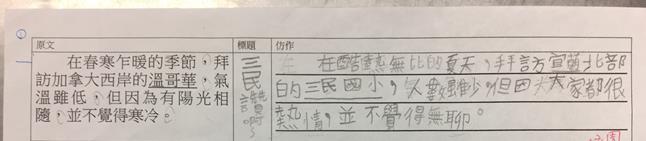 原文
標題
仿作
在春寒乍暖的季節，拜
訪加拿大西岸的溫哥華，氣
溫雖低，但因為有陽光相
隨，並不覺得寒冷。
三民
在酷熱無比的夏天，拜訪宜蘭北部
的三民國小，人數雖少，但因大家都很
熱情，並不覺得無聊。